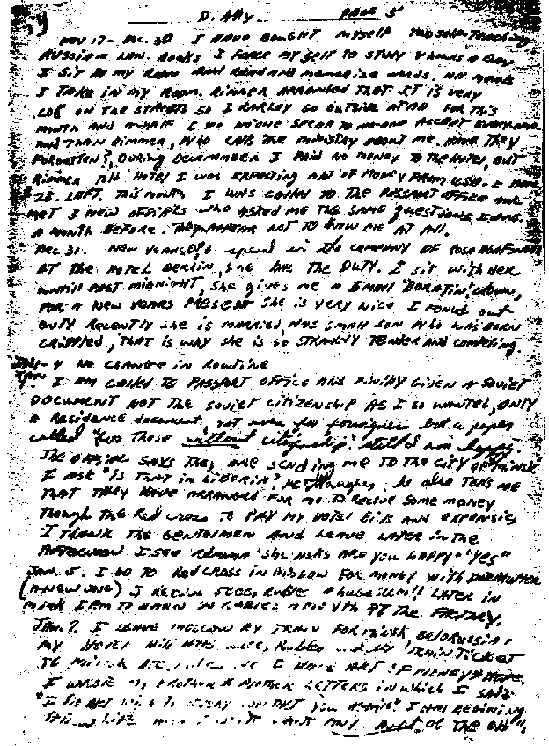 DIARY PAGE 5
Nov 17 - Dec. 30 I have bought myself two self-teaching
Russian Lan. Books I force myself to study 8 hours a day
I sit in my room and read and memorize words. All meals
I take in my room. Rimmer arranged that. It is very
cold on the streets so I rarley go outside at all for this
month and a half I see no one speak to no-one accept every now
and than Rimmer, who calls the ministry about me. Have they
forgotten?, During December I paid no money to the hotel, but
Rimmer told Hotel I was expecting alot of money from USA. I have
28. left. This month I was called to the passport office and
met 3 new offials who asked me the same questions I ans.
a month before. They appear not to know me at all.
Dec 31. New years, spend in the company of Rosa
at the Hotel Berlin, she has the duty. I sit with her
until past midnight, she gives me a small "Boratin" clown,
for a New Years present She is very nice I found out
only recently she is married, has small son who was born
crippled, that is why she is so strangly tender and compeling.
no change in routine
I am called to passport office and finilly given a Soviet
document not the soviet citizenship as I so wanted, only
a Residence document, not even for foringners but a paper
called "for those without citizenship." Still I am happy.
The offial says they are sending me to the city of "Minsk"
I ask "is that in Siberia?" He only laughes. he also tells me
that they have arranged for me to recive some money
though the Red Cross to pay my hotel bills and expensis
I thank the gentelmen and leave later in the
afternoon I see Rimma she asks are you happy" "yes"
Jan. 5. I go to Red Cross in Moscow for money with Interrupter
(a new one) I recive 5000. rubles a huge sum!! Later in
Minsk I am to earn 70 rubles a month at the factory.
Jan. 7. I leave Moscow by train for Minsk, Belorussia.
My Hotel bill was rubles and my train ticket
to Minsk so I have alot of money & hope.
I wrote my brother & mother letters in which I said
"I do not wish to every contact you again." I am begining
new life and I don't want any part of the old".